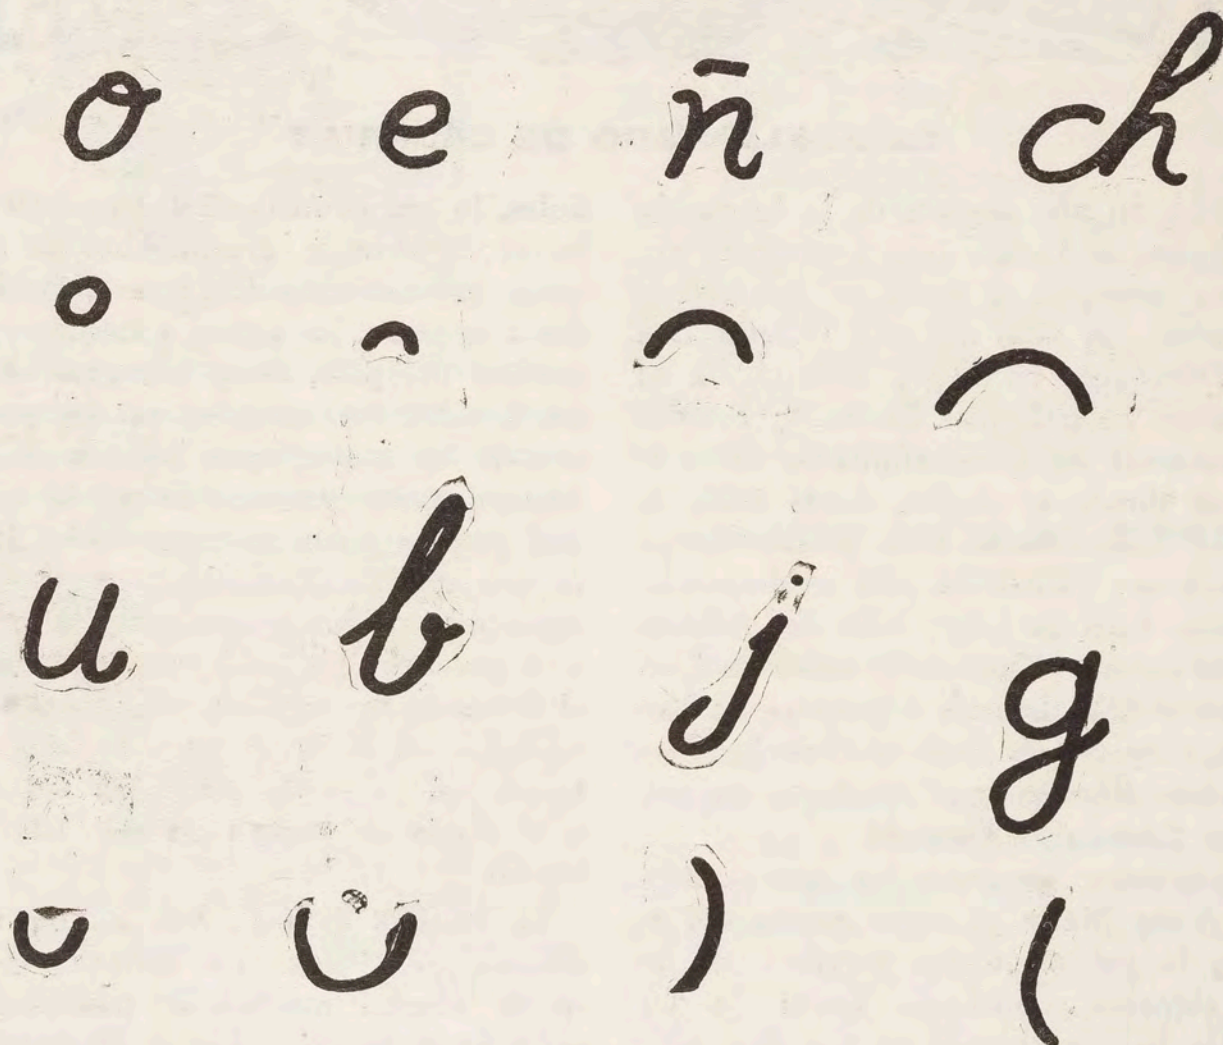 o e ñ ch
u b j g